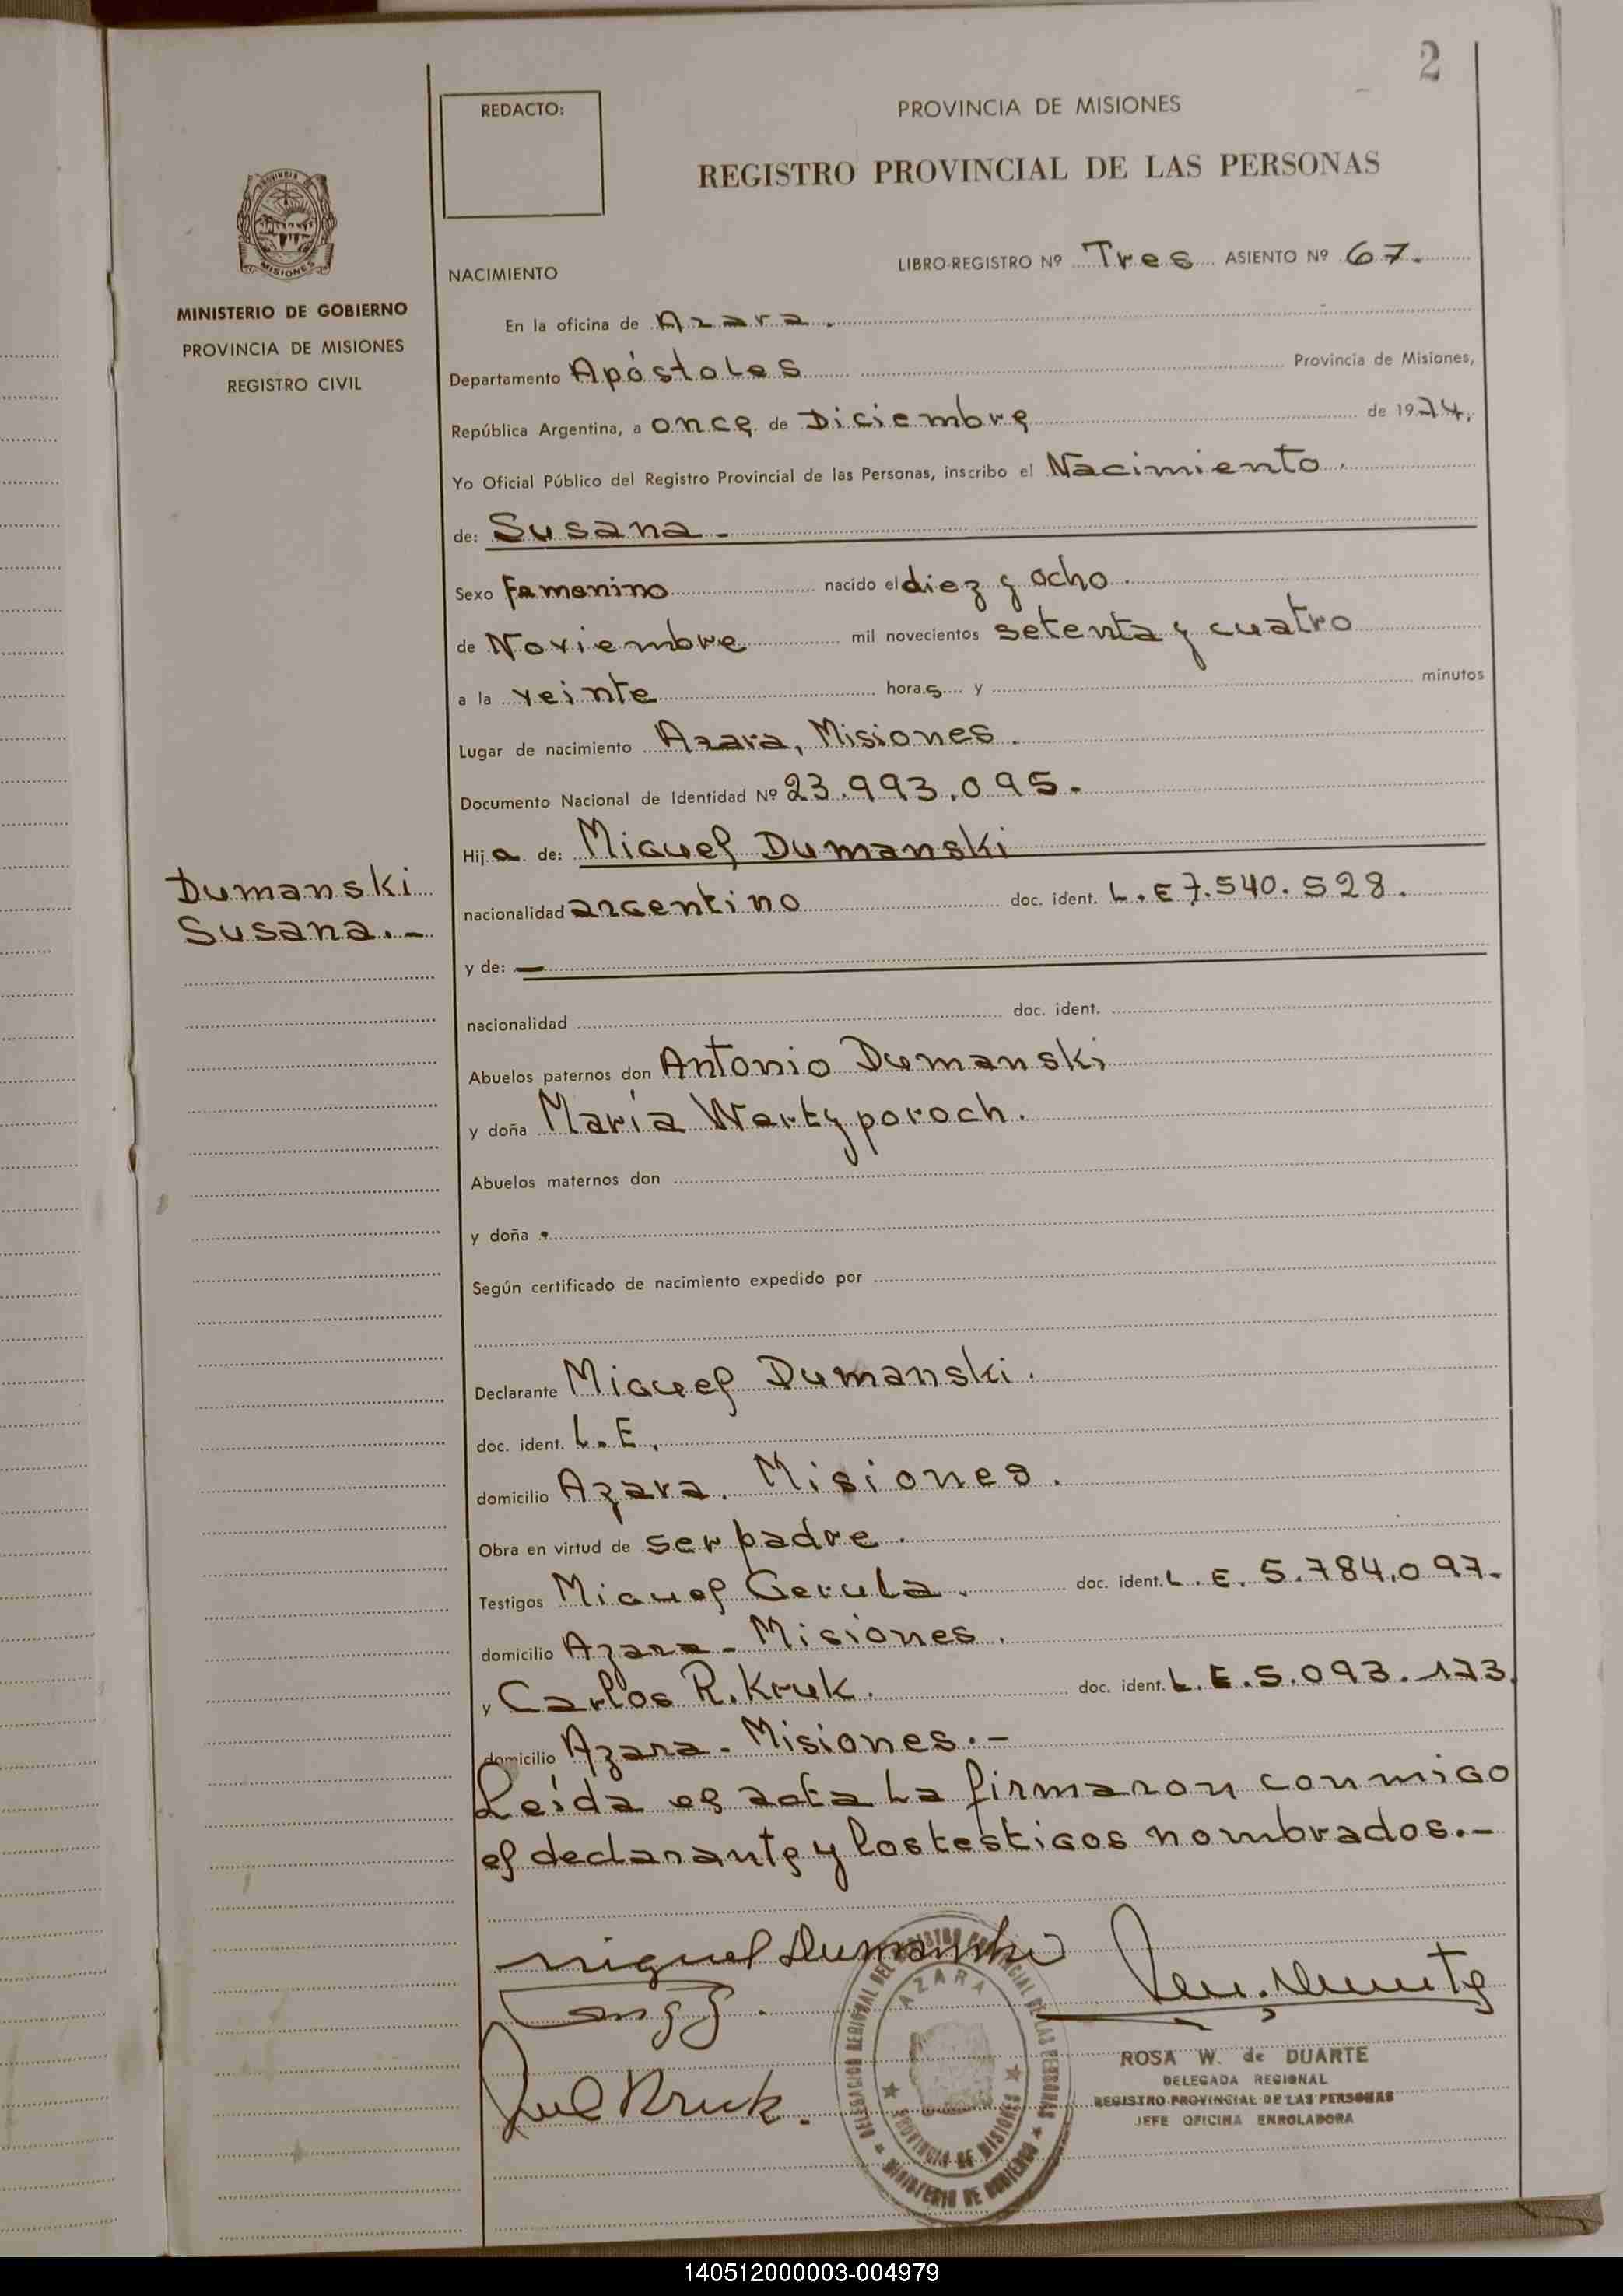 2
REDACTO:
PROVINCIA DE MISIONES
REGISTRO PROVINCIAL DE LAS PERSONAS
PROVINCIA
MISIONES
MINISTERIO DE GOBIERNO
PROVINCIA DE MISIONES
REGISTRO CIVIL
NACIMIENTO
LIBRO-REGISTRO Nº Tres ASIENTO Nº 67.
En la oficina de Azara.
Departamento Apóstoles Provincia de Misiones,
República Argentina, a once de Diciembre de 1974,
Yo Oficial Público del Registro Provincial de las Personas, inscribo el Nacimiento.
de: Susana.-
Sexo femenino nacido el diez y ocho.
de Noviembre mil novecientos setenta y cuatro
a la veinte horas y minutos
Lugar de nacimiento Azara, Misiones.
Documento Nacional de Identidad Nº 23.993.095.
Hija de: Miguel Dumanski
Dumanski
Susana.-
nacionalidad argentino doc. ident. L.E 7.540.528.
y de: —
nacionalidad doc. ident.
Abuelos paternos don Antonio Dumanski
y doña María Wertyporoch.
Abuelos maternos don
y doña
Según certificado de nacimiento expedido por
Declarante Miguel Dumanski.
doc. ident. L.E.
domicilio Azara. Misiones.
Obra en virtud de ser padre.
Testigos Miguel Gerula. doc. ident. L.E. 5.784.097.
domicilio Azara - Misiones.
y Carlos R. Kruk. doc. ident. L.E. 5.093.173.
domicilio Azara - Misiones.-
Leída el acta la firmaron conmigo
el declarante y los testigos nombrados.-
Miguel Dumanski
Kruk.
DELEGACION REGIONAL DEL REGISTRO PROVINCIAL DE LAS PERSONAS
AZARA
PROVINCIA DE MISIONES
MINISTERIO DE GOBIERNO
ROSA W. de DUARTE
DELEGADA REGIONAL
REGISTRO PROVINCIAL DE LAS PERSONAS
JEFE OFICINA ENROLADORA
140512000003-004979